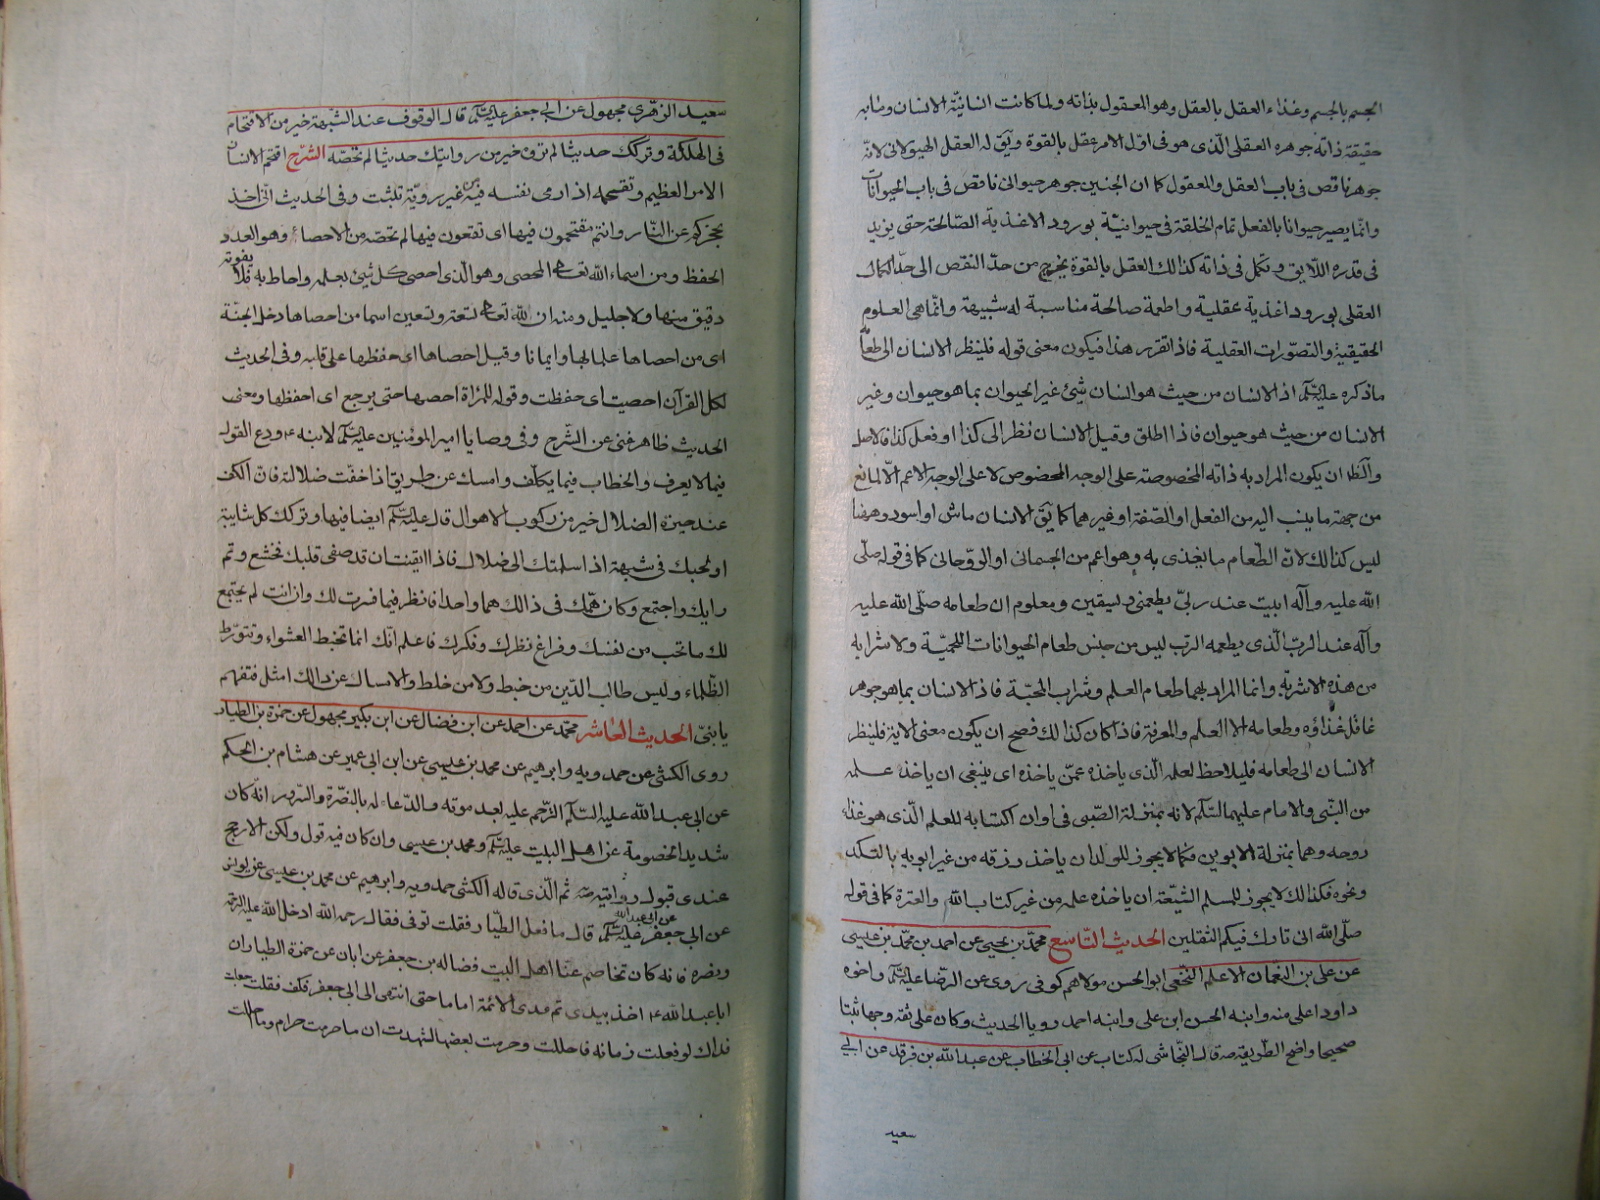 الجسم بالجسم وغذاء العقل بالعقل وهو المعقول بذاته ولما كانت انسانيّة الانسان ومابه
حقيقة ذاته جوهره العقلى الّذى هو فى اوّل الامر عقل بالقوة ويق له العقل الهيولانى لانّه
جوهر ناقص فى باب العقل والمعقول كما ان الجنين جوهر حيوانى ناقص فى باب الحيوانات
وانّما يصير حيوانا بالفعل تمام الخلقة فى حيوانيّة بورود الاغذية الصّالحة حتى يزيد
فى قدره اللايق ويكمل فى ذاته كذالك العقل بالقوة يخرج من حدّ النقص الى حدّ الكمال
العقلى بورود اغذية عقلية واطعمة صالحة مناسبة له شبيهة وانّما هى العلوم
الحقيقية والتصوّرات العقلية فاذا تقرر هذا فيكون معنى قوله فلينظر الانسان الى طعامه
ما ذكره عليه السّلم اذ الانسان من حيث هو انسان شئ غير الحيوان بما هو حيوان وغير
الانسان من حيث هو حيوان فاذا اطلق وقيل الانسان نظر الى كذا او فعل كذا فالاصل
والظا ان يكون المراد به ذاته المخصوصة على الوجه المخصوص لا على الوجه الاعم الّا لمانع
من جهة ما ينسب اليه من الفعل او الصّفة او غيرهما كما يق الانسان ماش او اسود وههنا
ليس كذالك لانّ الطّعام ما يغذى به وهو اعم من الجسمانى او الروّحانى كما فى قوله صلّى
الله عليه وآله ابيت عند ربىّ يطعمنى ويسقين ومعلوم ان طعامه صلّى الله عليه
وآله عند الرب الّذى يطعمه الرب ليس من جنس طعام الحيوانات اللحميّة ولا شرابه
من هذه الاشربة وانما المراد بهما طعام العلم وشراب المحبّة فاذ الانسان بما هو جوهر
عاقل غذاؤه وطعامه الا العلم والمعرفة فاذا كان كذالك فصح ان يكون معنى الاية فلينظر
الانسان الى طعامه فليلاحظ لعلمه الّذى ياخذه عمّن ياخذه اى ينبغى ان ياخذ علمه
من النّبى والامام عليهما السّلم لانه بمنزلة الصّبى فى اوان اكتسابه للعلم الّذى هو غذاء
روحه وهما بمنزلة الابوين فكما لا يجوز للولد ان ياخذ رزقه من غير ابويه بالتكد
ونحوه فكذالك لا يجوز للمسلم الشيّعة ان ياخذه علمه من غير كتاب الله والعترة كما فى قوله
صلّى الله انى تارك فيكم الثقلين الحديث التّاسع محمّد بن يحيى عن احمد بن محمّد بن عيسى
عن على بن النّعمان الاعلم النّخعى ابو الحسن مولاهم كوفى روى عن الرّضا عليه السّلم واخوه
داود اعلى منه وابنه الحسن ابن على وابنه احمد رويا الحديث وكان على ثقه وجها ثبتا
صحيحا واضح الطّريقة صه قال النّجاشى له كتاب عن ابى الخطاب عن عبد الله بن فرقد عن ابى
سعيد
سعيد الزهّرى مجهول عن ابى جعفر عليه السّلم قال الوقوف عند الشّبهة خير من الاقتحام
فى الهلكة وتركك حديثا لم تروه خير من روايتك حديثا لم تحصّه الشّرح اقتحم الانسان
الامر العظيم وتقحمه اذا رمى نفسه فيه من غير رويّة تثبت وفى الحديث انى اخذ
بحجزكم عن النّار وانتم مقتحمون فيها اى تقعون فيها لم تحصه من الاحصاء وهو العدد
الحفظ ومن اسماء الله تعالى المحصى وهو الّذى احصى كل شئ بعلمه واحاط به فلا يفوته
دقيق منها ولا جليل ومنه ان لله تعالى تسعة وتسعين اسما من احصاها دخل الجنّة
اى من احصاها علما بها وايمانا وقيل احصاها اى حفظها على قلبه وفى الحديث
لكل القرآن احصيت اى حفظت وقوله للمرأة احصيها حتى يرجع اى احفظها ومعنى
الحديث ظاهر غنى عن الشّرح وفى وصايا امير المؤمنين عليه السّلم لابنه ع ودع القول
فيما لا يعرف والخطاب فيما يكلّف وامسك عن طريق اذا خفت ضلالته فانّ الكف
عند حيرة الضلال خير من ركوب الاهوال قال عليه السّلم ايضا فيها وترك كل شايبة
اولجتك فى شبهة اذ اسلمتك الى ضلال فاذا ايقنت ان قد صفى قلبك فخشع وتم
رايك واجتمع وكان همّك فى ذالك هما واحدا فانظر فيما فسرت لك وان انت لم يجتمع
لك ما تحب من نفسك وفراغ نظرك وفكرك فاعلم انّك انما تخبط العشواء وتتورّط
الظّلماء وليس طالب الدّين من خبط ولا من خلط والامساك عن ذالك امثل فتفهم
يا بنىّ الحديث العاشر محمّد عن احمد عن ابن فضال عن ابن بكير مجهول عن حمزة بن الطيار
روى الكشى عن حمدويه وابرهيم عن محمد بن عيسى عن ابن ابى عمير عن هشام بن الحكم
عن ابى عبد الله عليه السّلم الترّحم عليه بعد موته والدّعاء له بالنضّرة والسّرور انه كان
شديد الخصومة عن اهل البيت عليه السّلم ومحمد بن عيسى وان كان فيه قول ولكن الارجح
عندى قبول روايته صه ثم الّذى قاله الكشى حمدويه وابرهيم عن محمد بن عيسى عن يونس
عن ابى جعفر عليه السّلم عن ابى عبد الله قال ما فعل الطيّار فقلت توفى فقال رحمه الله ادخل الله عليه الرّحمة
ونضره فانه كان تخاصم عنّا اهل البيت فضاله بن جعفر عن ابان عن حمزة الطيار ان
ابا عبد الله ع اخذ بيدى ثم عدى الائمة اماما حتى انتهى الى ابى جعفر فكف فقلت جعلت
فداك لو فعلت زمانه فاحللت وحرمت بعضها لشهدت ان ما حرمت حرام وما احللت